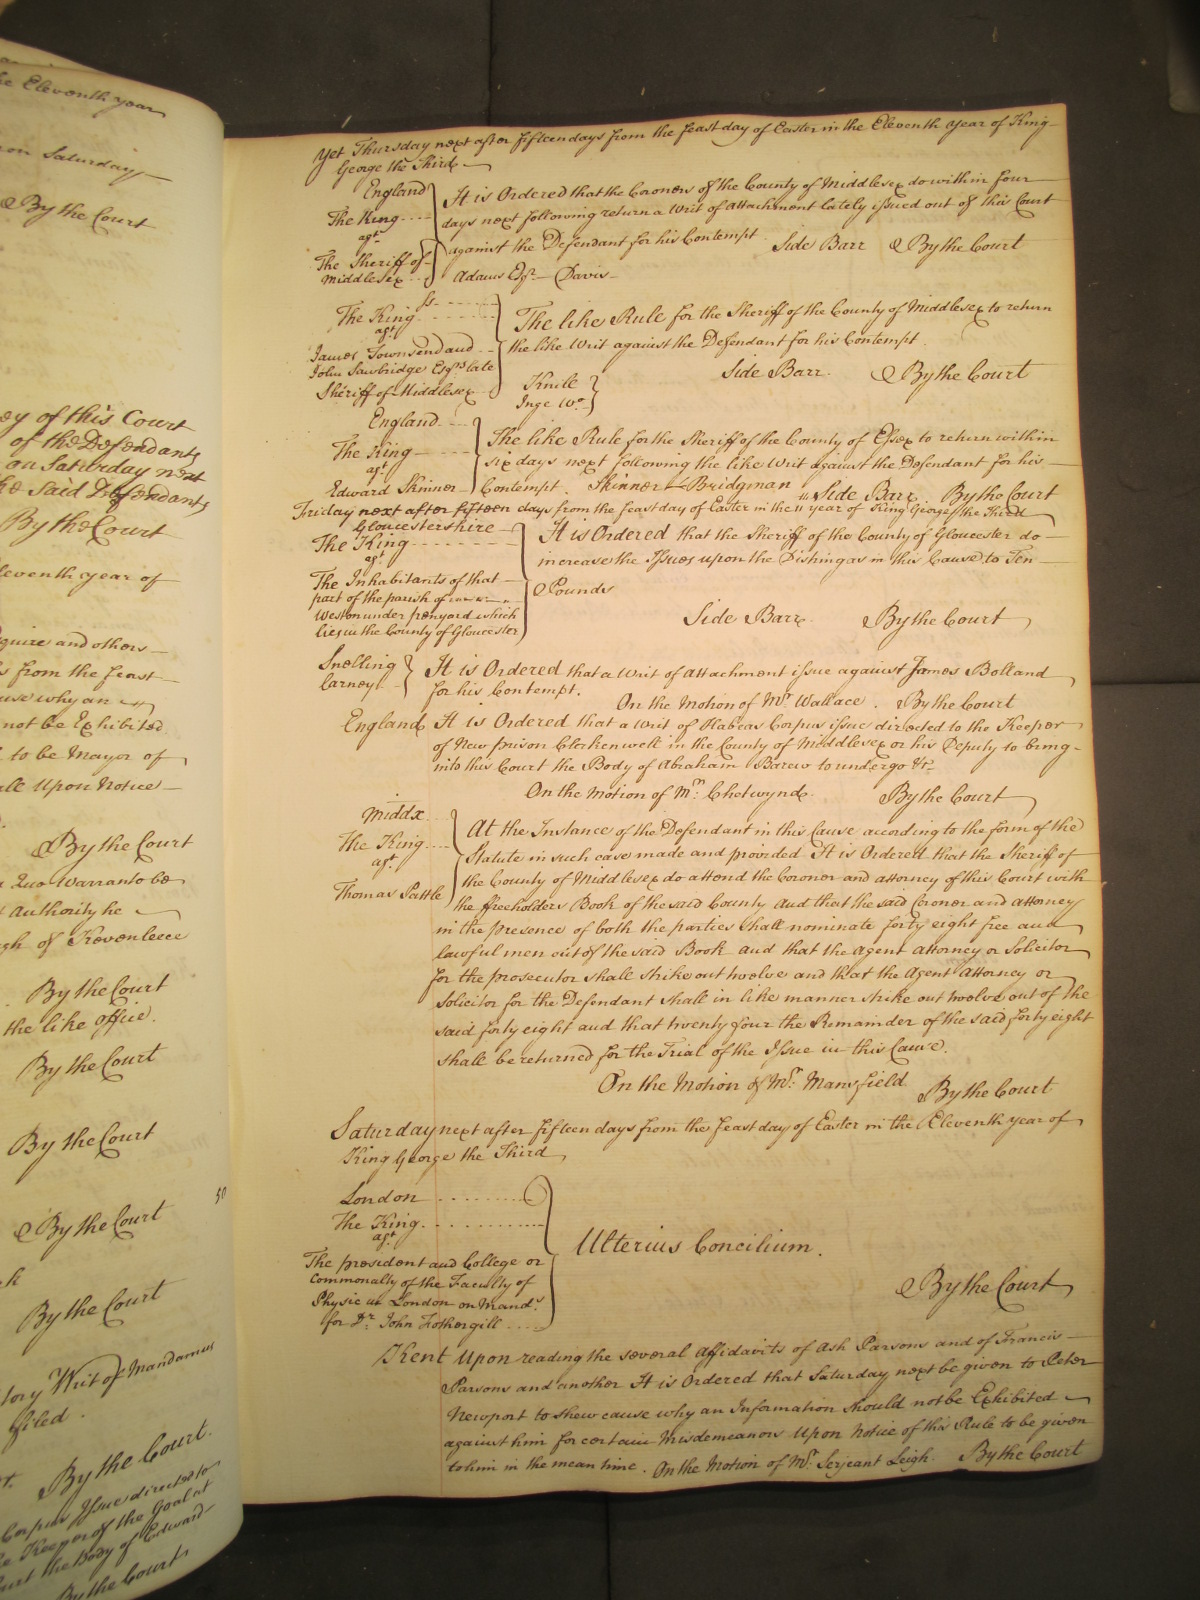 he Eleventh year
on Saturday
By the Court
ey of this Court
of the Defendants
on Saturday next
he said Defendants
By the Court
leventh year of
quire and others
s from the feast
use why an
not be Exhibited
to be Mayor of
Upon Notice
By the Court
Quo Warranto be
Authority he
gh of Trevenleece
By the Court
the like office.
By the Court
By the Court
50
By the Court
By the Court
tory Writ of Mandamus
filed.
By the Court.
Corpus Issue directed to
e Keeper of the Goal at
urt the Body of Edward
By the Court
Yet Thursday next after fifteen days from the feast day of Easter in the Eleventh year of King
George the Third
England
The King
agt.
The Sheriff of
Middlesex
It is Ordered that the Coroners of the County of Middlesex do within four
days next following return a Writ of Attachment lately issued out of this Court
against the Defendant for his Contempt. Side Barr By the Court
Adams Esqr. Davis
ss
The King
agt.
James Townsend and
John Sawbridge Esqrs. late
Sheriff of Middlesex
The like Rule for the Sheriff of the County of Middlesex to return
the like Writ against the Defendant for his Contempt.
Side Barr. By the Court
Knile
Inge Wo.
England
The King
agt.
Edward Skinner
The like Rule for the Sheriff of the County of Essex to return within
six days next following the like Writ against the Defendant for his
Contempt. Skinner Bridgman Side Barr. By the Court
Friday next after fifteen days from the feast day of Easter in the 11 year of King George the Third
Gloucestershire
The King
agt.
The Inhabitants of that
part of the parish of
Weston under penyard which
lies in the County of Gloucester
It is Ordered that the Sheriff of the County of Gloucester do
increase the Issues upon the Distringas in this Cause to Ten
Pounds
Side Barr. By the Court
Snelling
Carney
It is Ordered that a Writ of Attachment issue against James Bolland
for his Contempt.
On the Motion of Mr. Wallace. By the Court
England It is Ordered that a Writ of Habeas Corpus issue directed to the Keeper
of New prison Clerkenwell in the County of Middlesex or his Deputy to bring
into this Court the Body of Abraham Barew to undergo &c.
On the Motion of Mr. Chetwynd. By the Court
Middx
The King
agt.
Thomas Pattle
At the Instance of the Defendant in this Cause according to the form of the
Statute in such case made and provided It is Ordered that the Sheriff of
the County of Middlesex do attend the Coroner and attorney of this Court with
the ffreeholders Book of the said County And that the said Coroner and attorney
in the presence of both the parties shall nominate forty eight free and
lawful men out of the said Book and that the Agent attorney or Solicitor
for the prosecutor shall strike out twelve and that the Agent Attorney or
Solicitor for the Defendant shall in like manner strike out twelve out of the
said forty eight and that twenty four the Remainder of the said forty eight
shall be returned for the Trial of the Issue in this Cause.
On the Motion of Mr. Mansfield By the Court
Saturday next after fifteen days from the feast day of Easter in the Eleventh year of
King George the Third
London
The King
agt.
The president and College or
Commonalty of the Faculty of
Physic in London on Mands.
for Dr. John Fothergill
Ulterius Concilium.
By the Court
Kent Upon reading the several Affidavits of Ash Parsons and of Francis
Parsons and another It is Ordered that Saturday next be given to Peter
Newport to shew cause why an Information should not be Exhibited
against him for certain Misdemeanors Upon Notice of this Rule to be given
to him in the mean time. On the Motion of Mr. Serjeant Leigh. By the Court